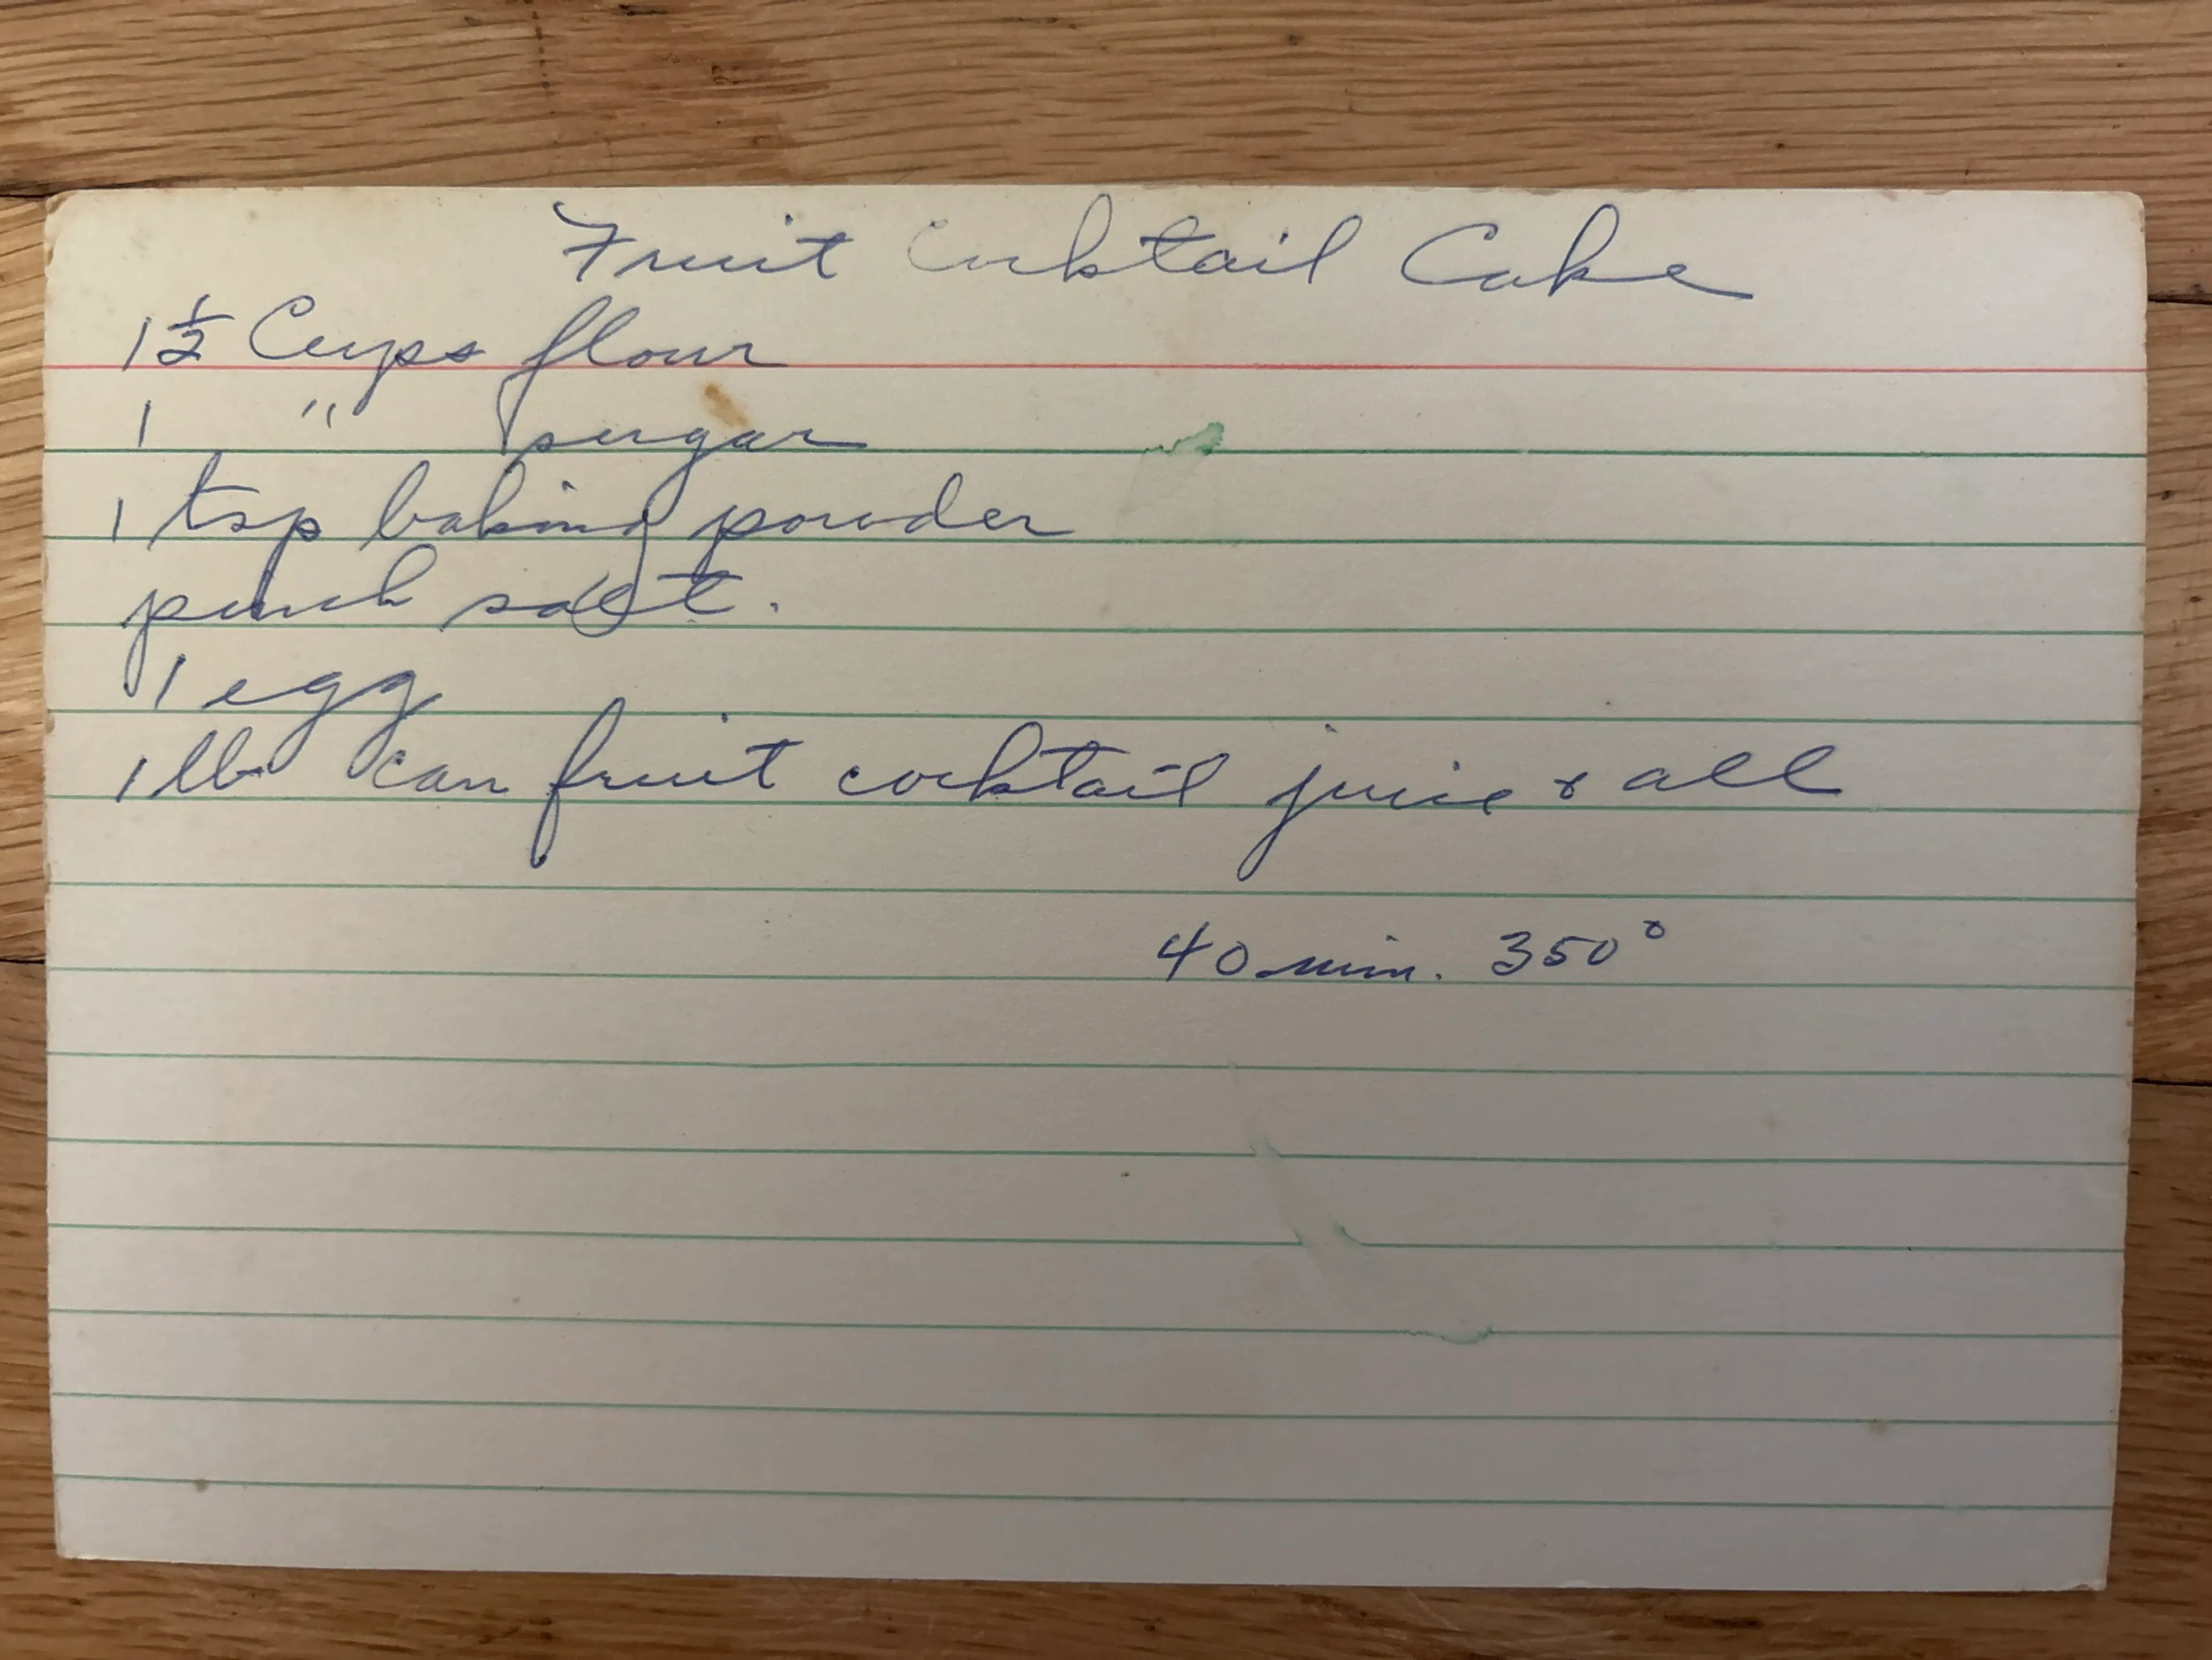 Fruit Cocktail Cake
1 1/2 Cups flour
1 " sugar
1 tsp baking powder
pinch salt.
1 egg
1 lb can fruit cocktail juice & all
40 min. 350°